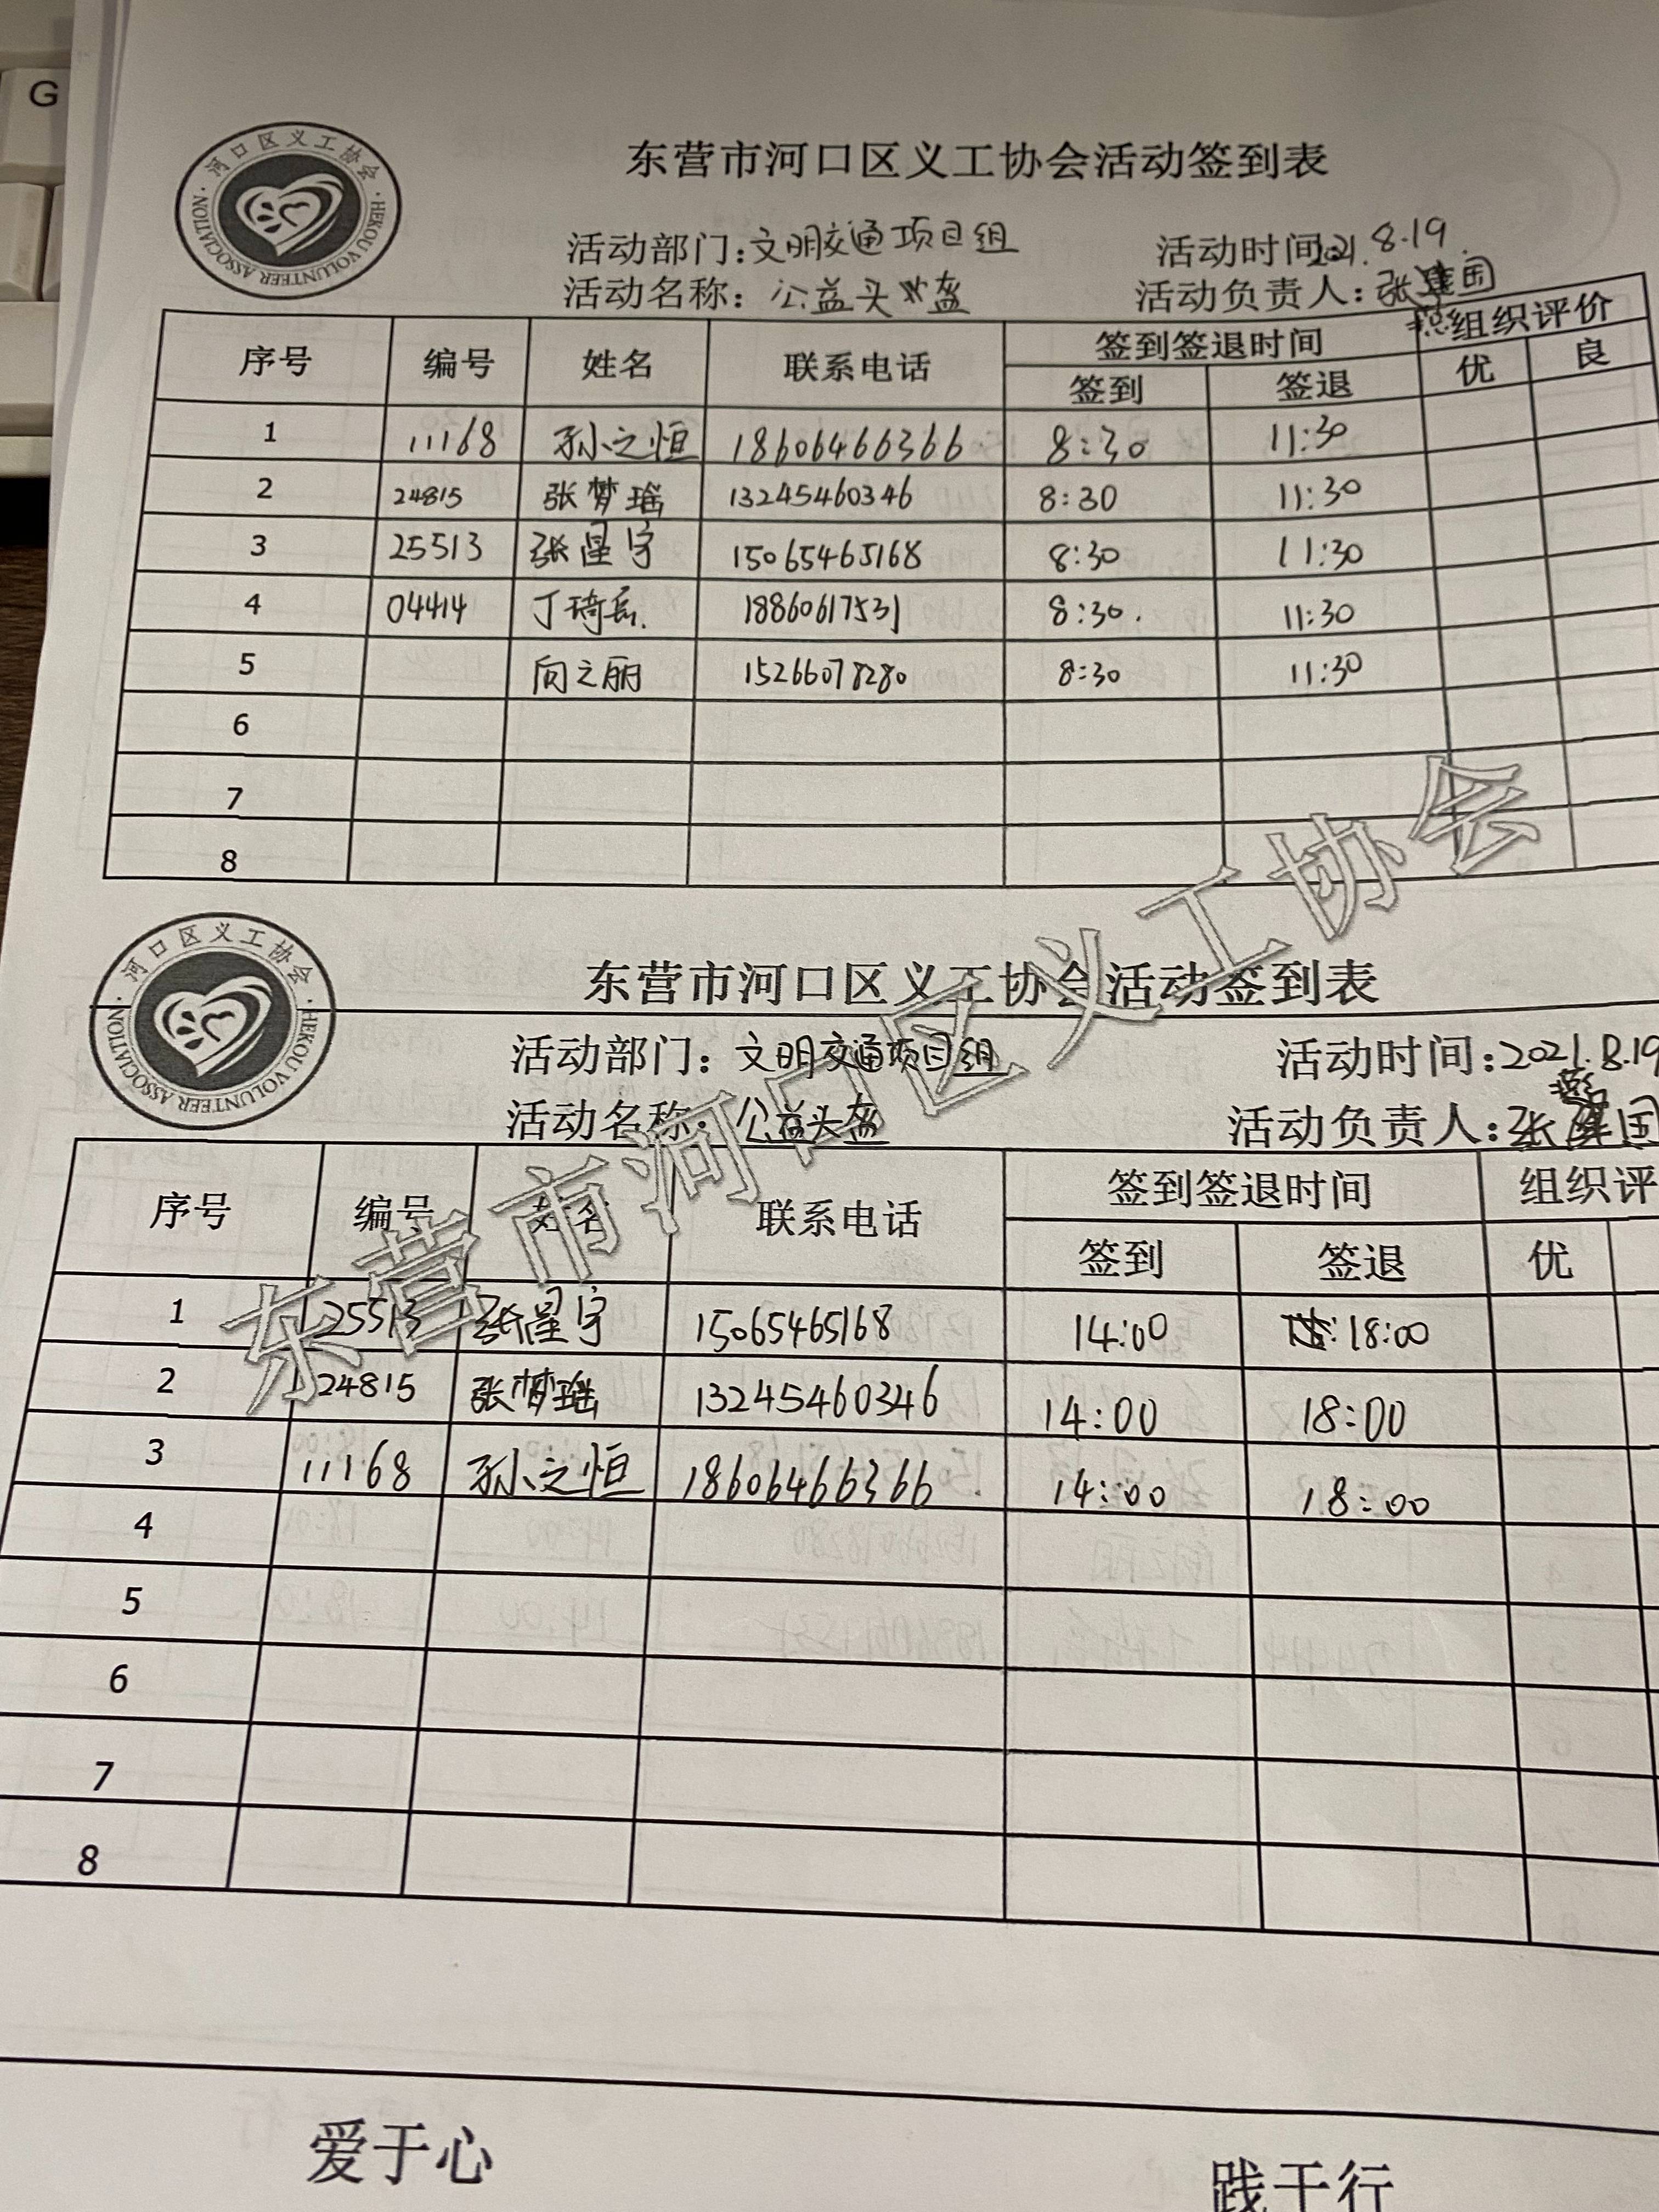 G
河口区义工协会
HEKOU VOLUNTEER ASSOCIATION
东营市河口区义工协会活动签到表
活动部门:文明交通项目组 活动时间:2021.8.19
活动名称: 公益头盔 活动负责人:张国
序号 编号 姓名 联系电话 签到签退时间 组织评价
签到 签退 优 良
1 11168 孙之恒 18606466366 8:30 11:30
2 24815 张梦瑶 13245460346 8:30 11:30
3 25513 张星宇 15065465168 8:30 11:30
4 04414 丁琦 18860617531 8:30. 11:30
5 闫之丽 15266078280 8:30 11:30
6
7
8
河口区义工协会
HEKOU VOLUNTEER ASSOCIATION
东营市河口区义工协会活动签到表
活动部门: 文明交通项目组 活动时间:2021.8.19
活动名称: 公益头盔 活动负责人:张国
序号 编号 姓名 联系电话 签到签退时间 组织评
签到 签退 优
1 25513 张星宇 15065465168 14:00 18:00
2 24815 张梦瑶 13245460346 14:00 18:00
3 11168 孙之恒 18606466366 14:00 18:00
4
5
6
7
8
东营市河口区义工协会
爱于心 践于行